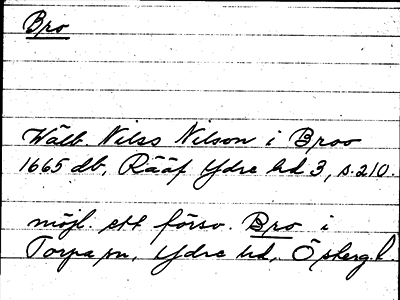 Bro
Wälb. Nilss Nilson i Broo
1665 db, Rääf Ydre hd 3, s. 210.
möjl. ett försv. Bro i
Torpa sn, Ydre hd, Östergl.